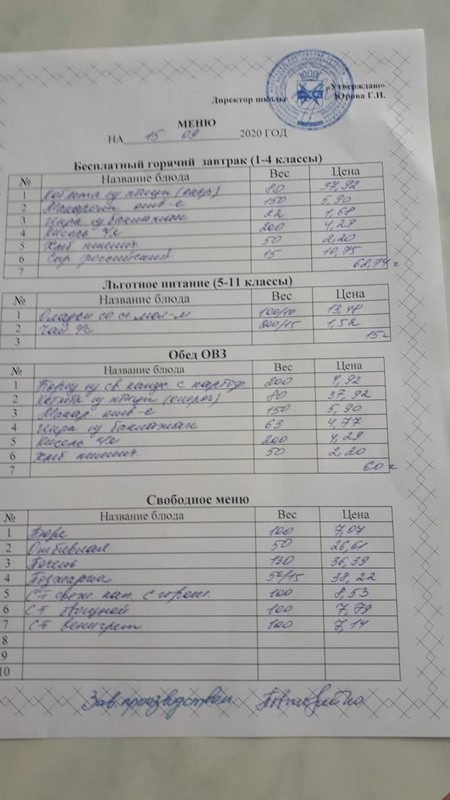 «Утверждаю»
Директор школы Юрова Г.И.
МЕНЮ
НА 15 09 2020 ГОД
Бесплатный горячий завтрак (1-4 классы)
№ Название блюда Вес Цена
1 Котлета из птицы 80 37,92
2 Макароны отв-е 150 5,90
3 Икра из баклажан 22 1,68
4 Кисель 200 4,29
5 Хлеб пшенич 50 2,20
6 Сыр российский 15 10,75
7 62,74
Льготное питание (5-11 классы)
№ Название блюда Вес Цена
1 Оладьи со сг мол-м 13,48
2 Чай 1,52
3 15
Обед ОВЗ
№ Название блюда Вес Цена
1 Борщ из св капус с картоф 200 4,92
2 Котлета из птицы 80 37,92
3 Макар отв-е 150 5,90
4 Икра из баклажан 63 4,77
5 Кисель 200 4,29
6 Хлеб пшенич 50 2,20
7 60
Свободное меню
№ Название блюда Вес Цена
1 Пюре 100 7,07
2 Отбивная 50 26,61
3 130 36,39
4 50/15 38,22
5 СТ свеж кап. с 100 8,53
6 СТ 100 7,79
7 СТ венигрет 100 7,17
8
9
10
Зав. производством